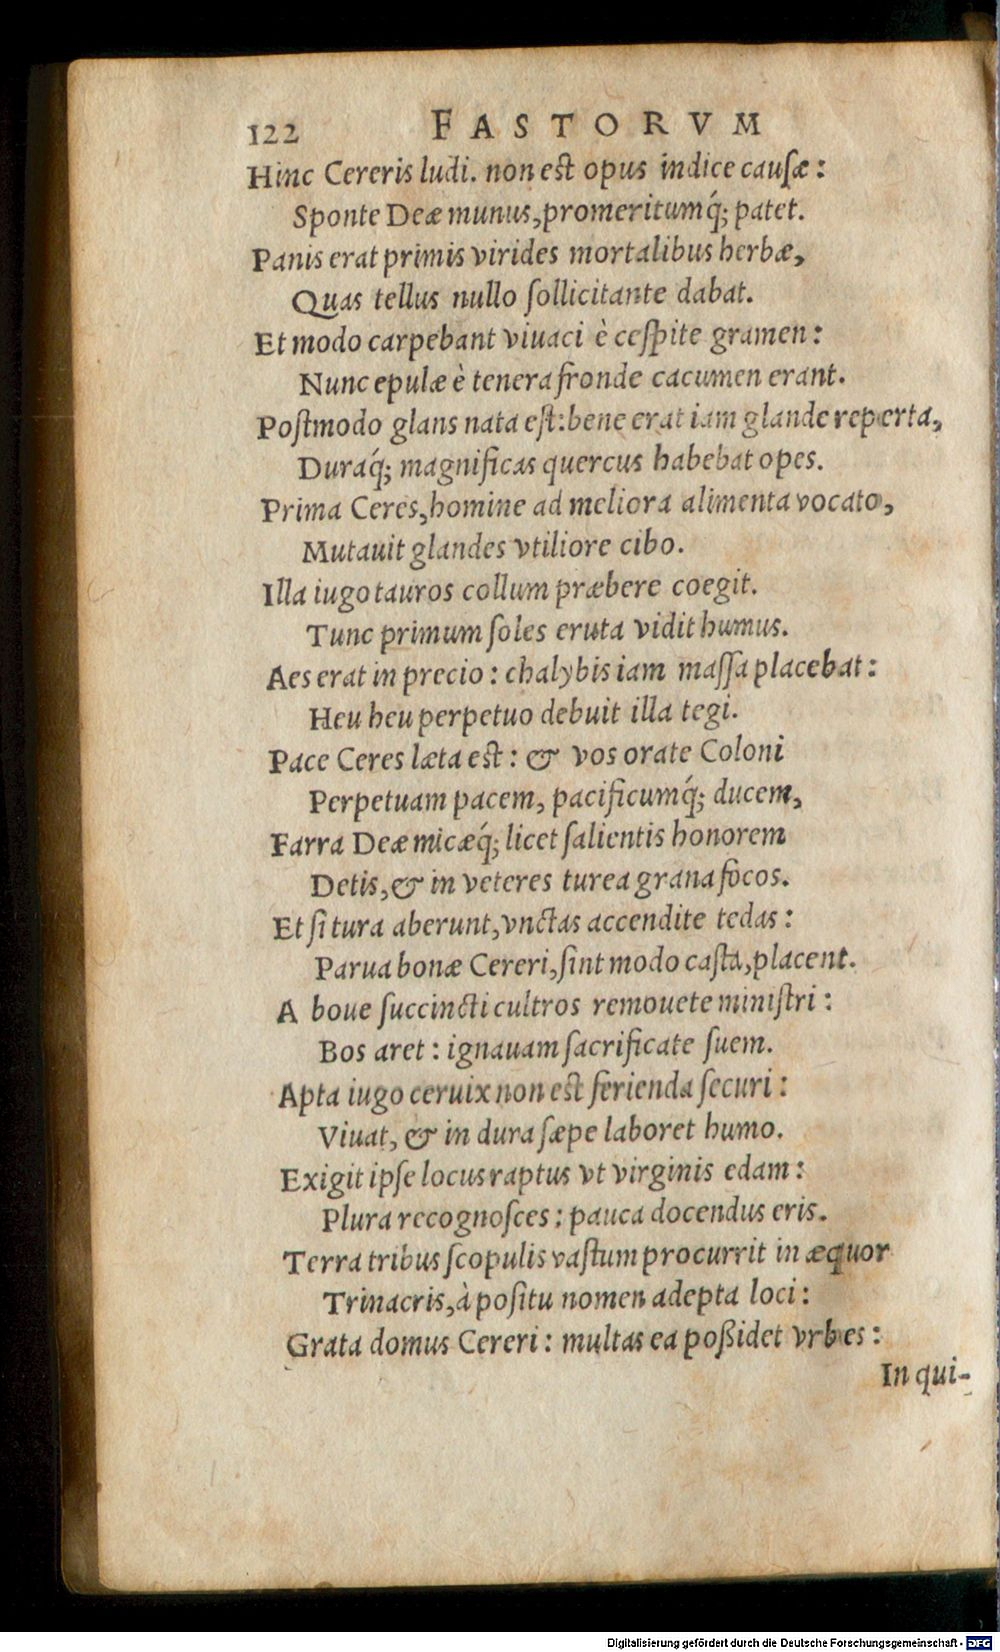 122 FASTORVM
Hinc Cereris ludi. non est opus indice causæ:
Sponte Deæ munus, promeritumq́; patet.
Panis erat primis virides mortalibus herbæ,
Quas tellus nullo ſollicitante dabat.
Et modo carpebant viuaci è ceſpite gramen:
Nunc epulæ è tenera fronde cacumen erant.
Poſtmodo glans nata eſt: bene erat iam glande reperta,
Duraq́; magnificas quercus habebat opes.
Prima Ceres, homine ad meliora alimenta vocato,
Mutauit glandes vtiliore cibo.
Illa iugo tauros collum præbere coegit.
Tunc primum ſoles eruta vidit humus.
Aes erat in precio: chalybis iam maſſa placebat:
Heu heu perpetuo debuit illa tegi.
Pace Ceres læta est: & vos orate Coloni
Perpetuam pacem, pacificumq́; ducem,
Farra Deæ micæq́; licet ſalientis honorem
Detis, & in veteres turea grana focos.
Et ſi tura aberunt, vnctas accendite tedas:
Parua bonæ Cereri, ſint modo caſta, placent.
A boue ſuccincti cultros remouete miniſtri:
Bos aret: ignauam ſacrificate ſuem.
Apta iugo ceruix non est ferienda ſecuri:
Viuat, & in dura ſæpe laboret humo.
Exigit ipſe locus raptus vt virginis edam:
Plura recognoſces: pauca docendus eris.
Terra tribus ſcopulis vaſtum procurrit in æquor
Trinacris, à poſitu nomen adepta loci:
Grata domus Cereri: multas ea poßidet vrbes:
In qui-
Digitalisierung gefördert durch die Deutsche Forschungsgemeinschaft - DFG